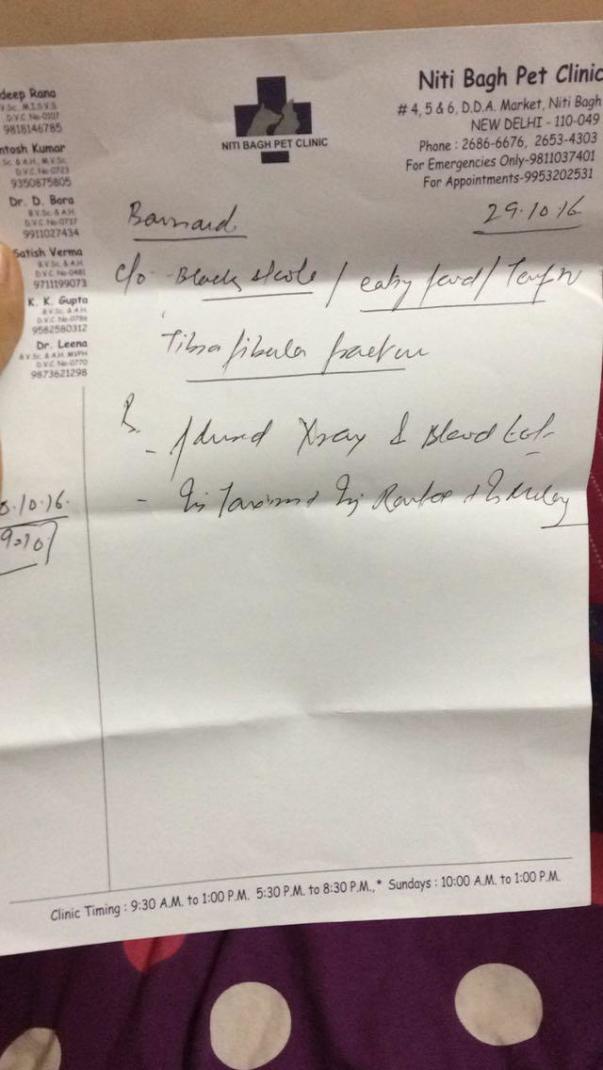 deep Rana
V.Sc. M.I.S.V.S
D.V.C No-0107
9818146785
ntosh Kumar
Sc. & A.H., M.V.Sc.
D.V.C No-0723
9350875805
Dr. D. Bora
B.V.Sc. & A.H.
D.V.C No-0737
9911027434
Satish Verma
B.V.Sc. & A.H.
D.V.C No-0481
9711199073
K. K. Gupta
B.V.Sc. & A.H.
D.V.C No-0786
9582580312
Dr. Leena
B.V.Sc. & A.H. MVPH
D.V.C No-0770
9873621298
NITI BAGH PET CLINIC
Niti Bagh Pet Clinic
# 4, 5 & 6, D.D.A. Market, Niti Bagh
NEW DELHI - 110-049
Phone : 2686-6676, 2653-4303
For Emergencies Only-9811037401
For Appointments-9953202531
29.10.16
Barnard
c/o - Black stool /
Tibia fibula
- Xray & Blood
- Inj Inj
.10.16.
Clinic Timing : 9:30 A.M. to 1:00 P.M. 5:30 P.M. to 8:30 P.M.,* Sundays : 10:00 A.M. to 1:00 P.M.